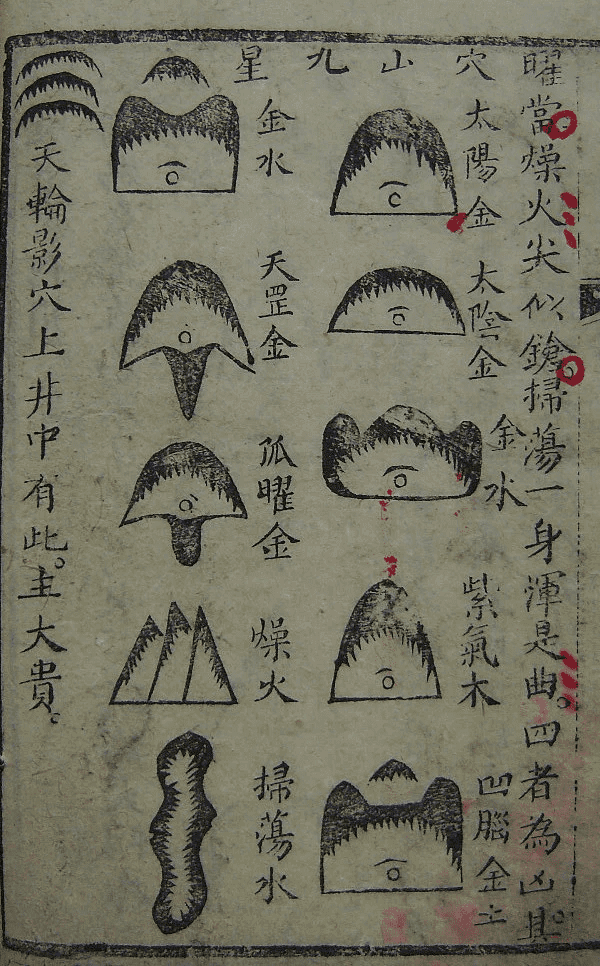 曜當燥火尖似鎗掃蕩一身渾是曲。四者為凶且。
穴山九星
太陽金
太陰金
金水
紫氣木
凹腦金土
金水
天罡金
孤曜金
燥火
掃蕩水
天輪影穴上井中有此。主大貴。